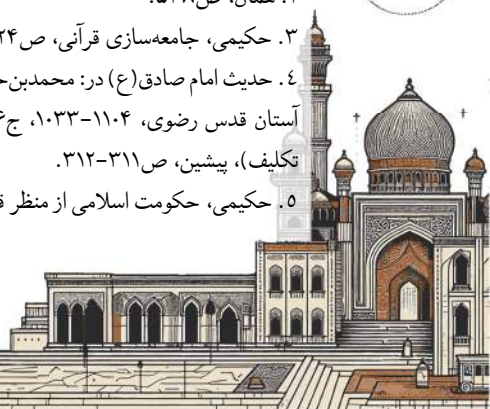 همان،
۳. حکیمی، جامعه‌سازی قرآنی، ص۲۴
٤. حدیث امام صادق(ع) در: محمدبن‌ح
آستان قدس رضوی، ۱۱۰۴-۱۰۳۳، ج
تکلیف)، پیشین، ص۳۱۱-۳۱۲.
٥. حکیمی، حکومت اسلامی از منظر ق